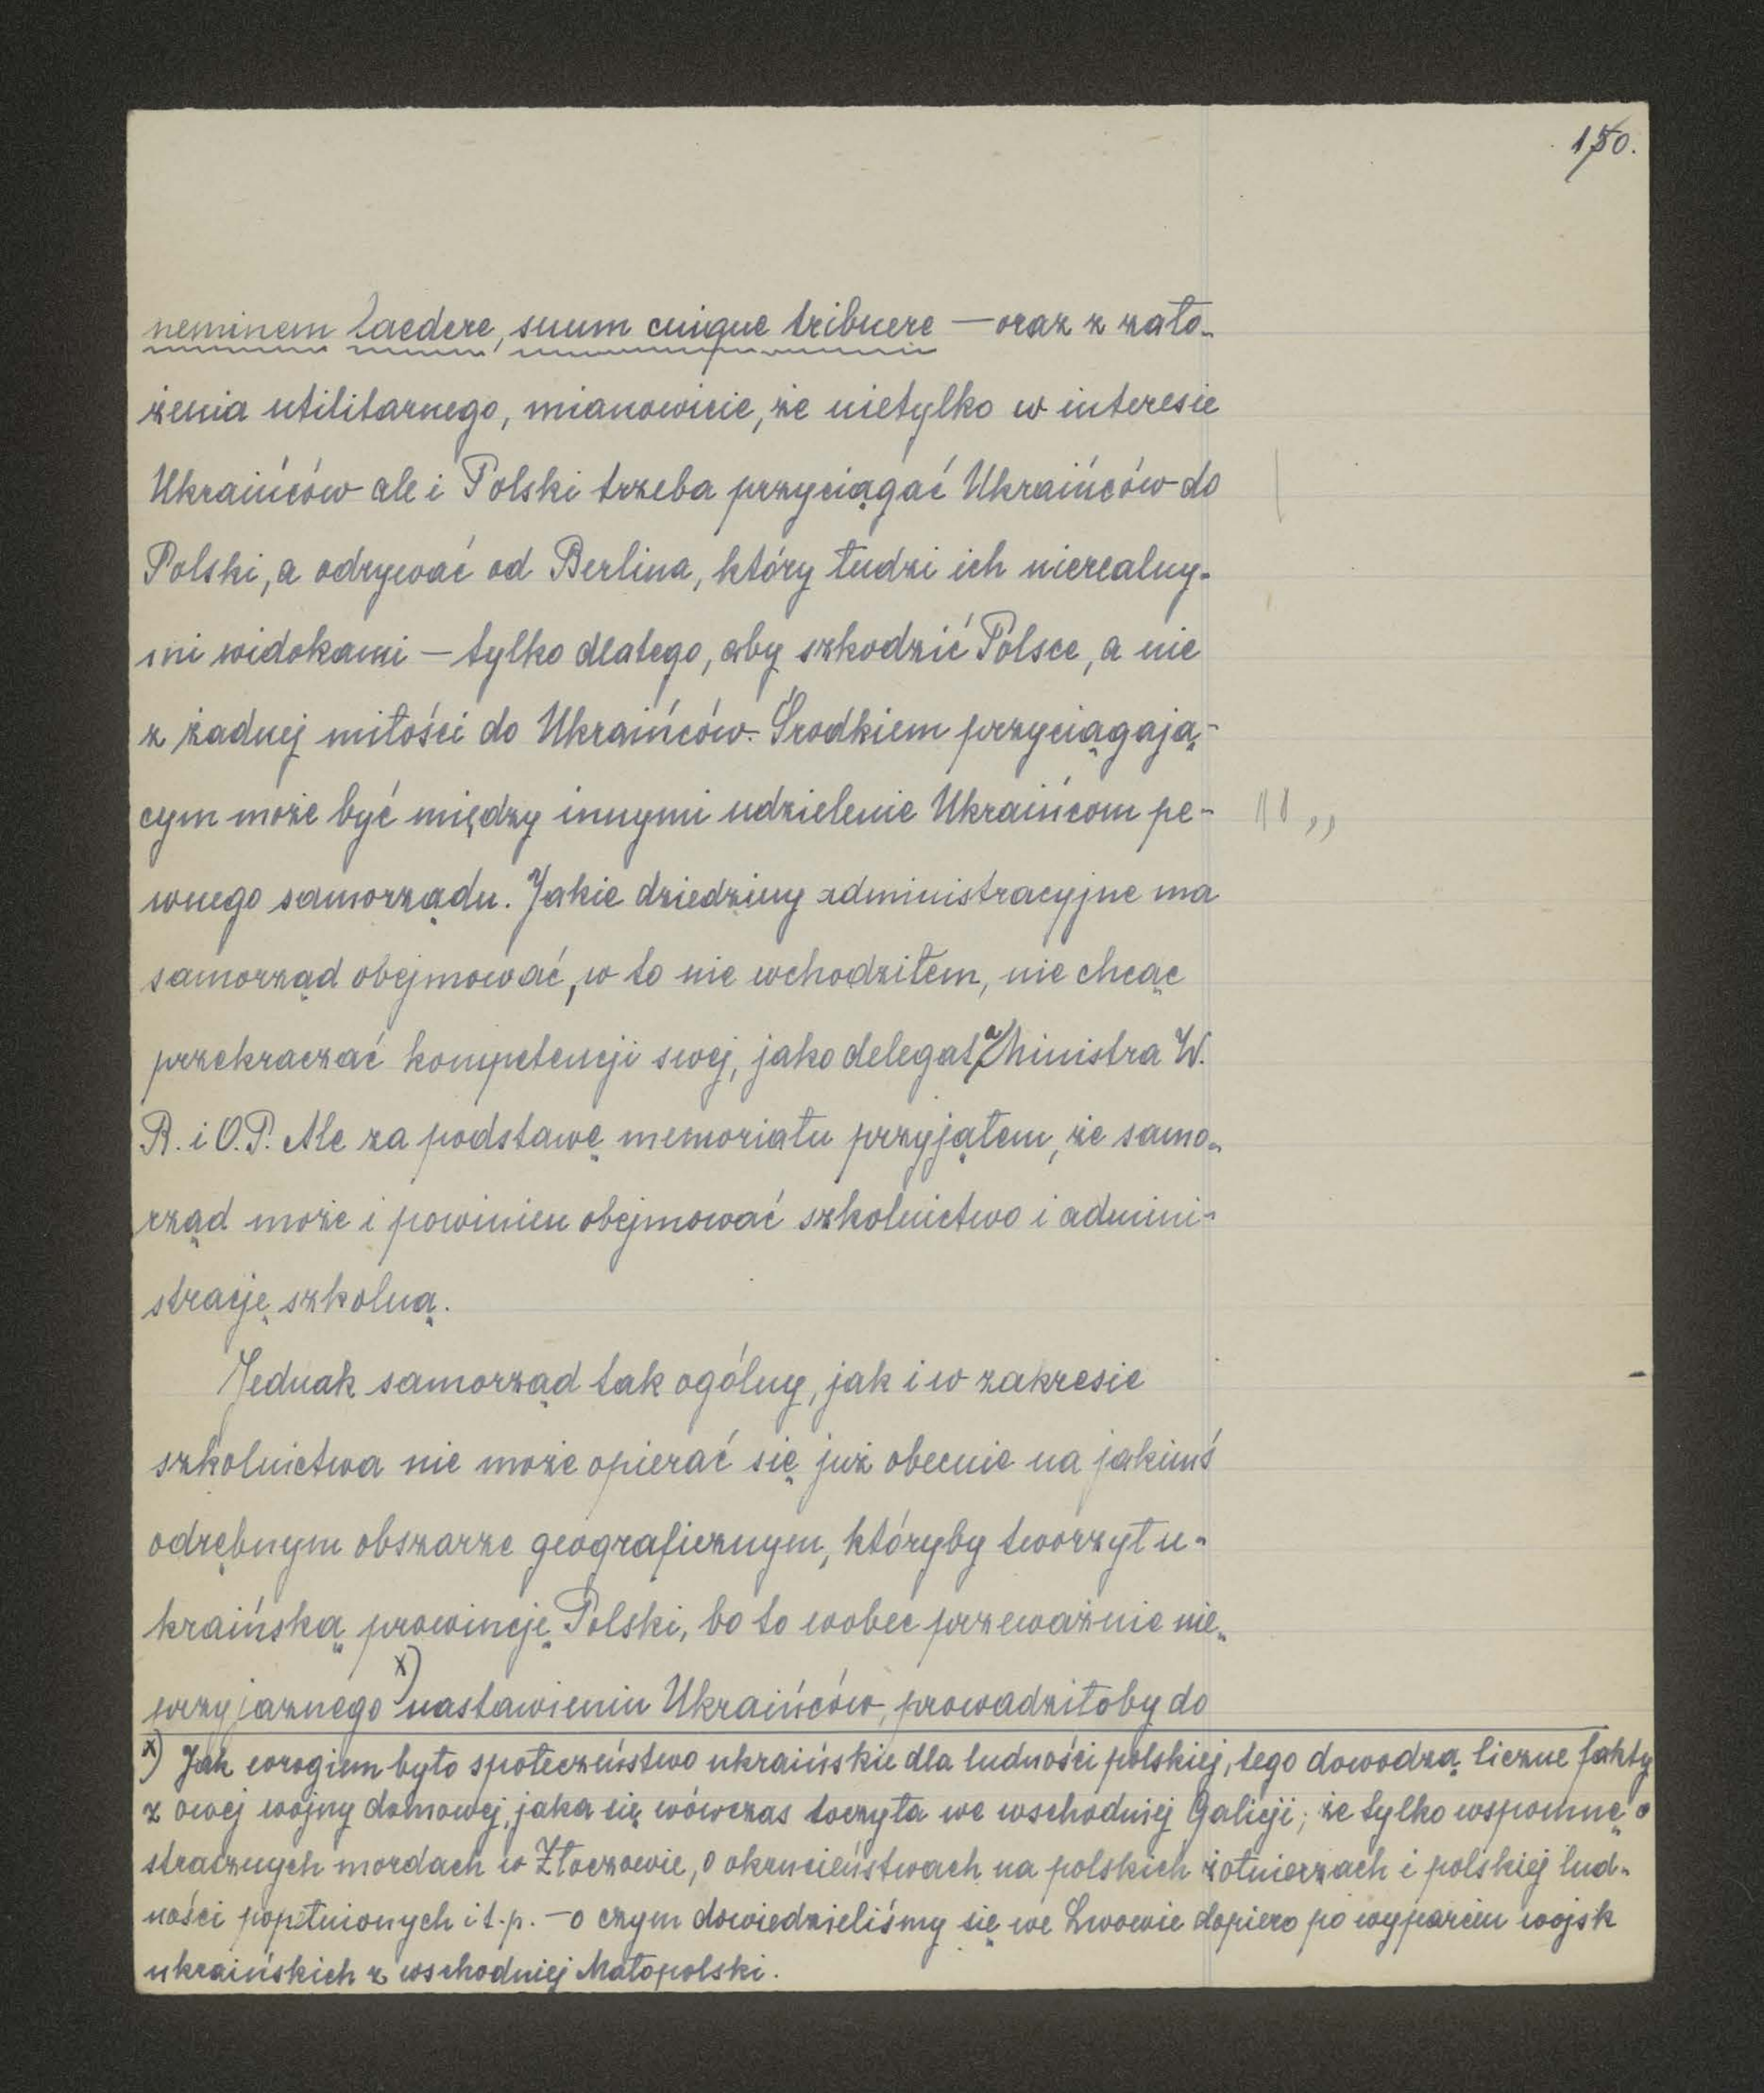 150.
neminem laedere, suum cuique tribuere — oraz z zało-
żenia utilitarnego, mianowicie, że nietylko w interesie
Ukraińców ale i Polski trzeba przyciągać Ukraińców do
Polski, a odrywać od Berlina, który łudzi ich nierealny-
mi widokami — tylko dlatego, aby szkodzić Polsce, a nie
z żadnej miłości do Ukraińców. Środkiem przyciągają-
cym może być między innymi udzielenie Ukraińcom pe-
wnego samorządu. Jakie dziedziny administracyjne ma
samorząd obejmować, w to nie wchodziłem, nie chcąc
przekraczać kompetencji swej, jako delegata Ministra W.
R. i O.P. Ale za podstawę memoriału przyjąłem, że samo-
rząd może i powinien obejmować szkolnictwo i admini-
strację szkolną.
Jednak samorząd tak ogólny, jak i w zakresie
szkolnictwa nie może opierać się już obecnie na jakimś
odrębnym obszarze geograficznym, któryby tworzył u-
kraińską prowincję Polski, bo to wobec przeważnie nie-
przyjaznego x) nastawieniu Ukraińców, prowadziłoby do
x) Jak wrogiem było społeczeństwo ukraińskie dla ludności polskiej, tego dowodzą liczne fakty
z owej wojny domowej, jaka się wówczas toczyła we wschodniej Galicji; że tylko wspomnę o
strasznych mordach w Złoczowie, o okrucieństwach na polskich żołnierzach i polskiej lud-
ności popełnionych i t.p. — o czym dowiedzieliśmy się we Lwowie dopiero po wyparciu wojsk
ukraińskich z wschodniej Małopolski.